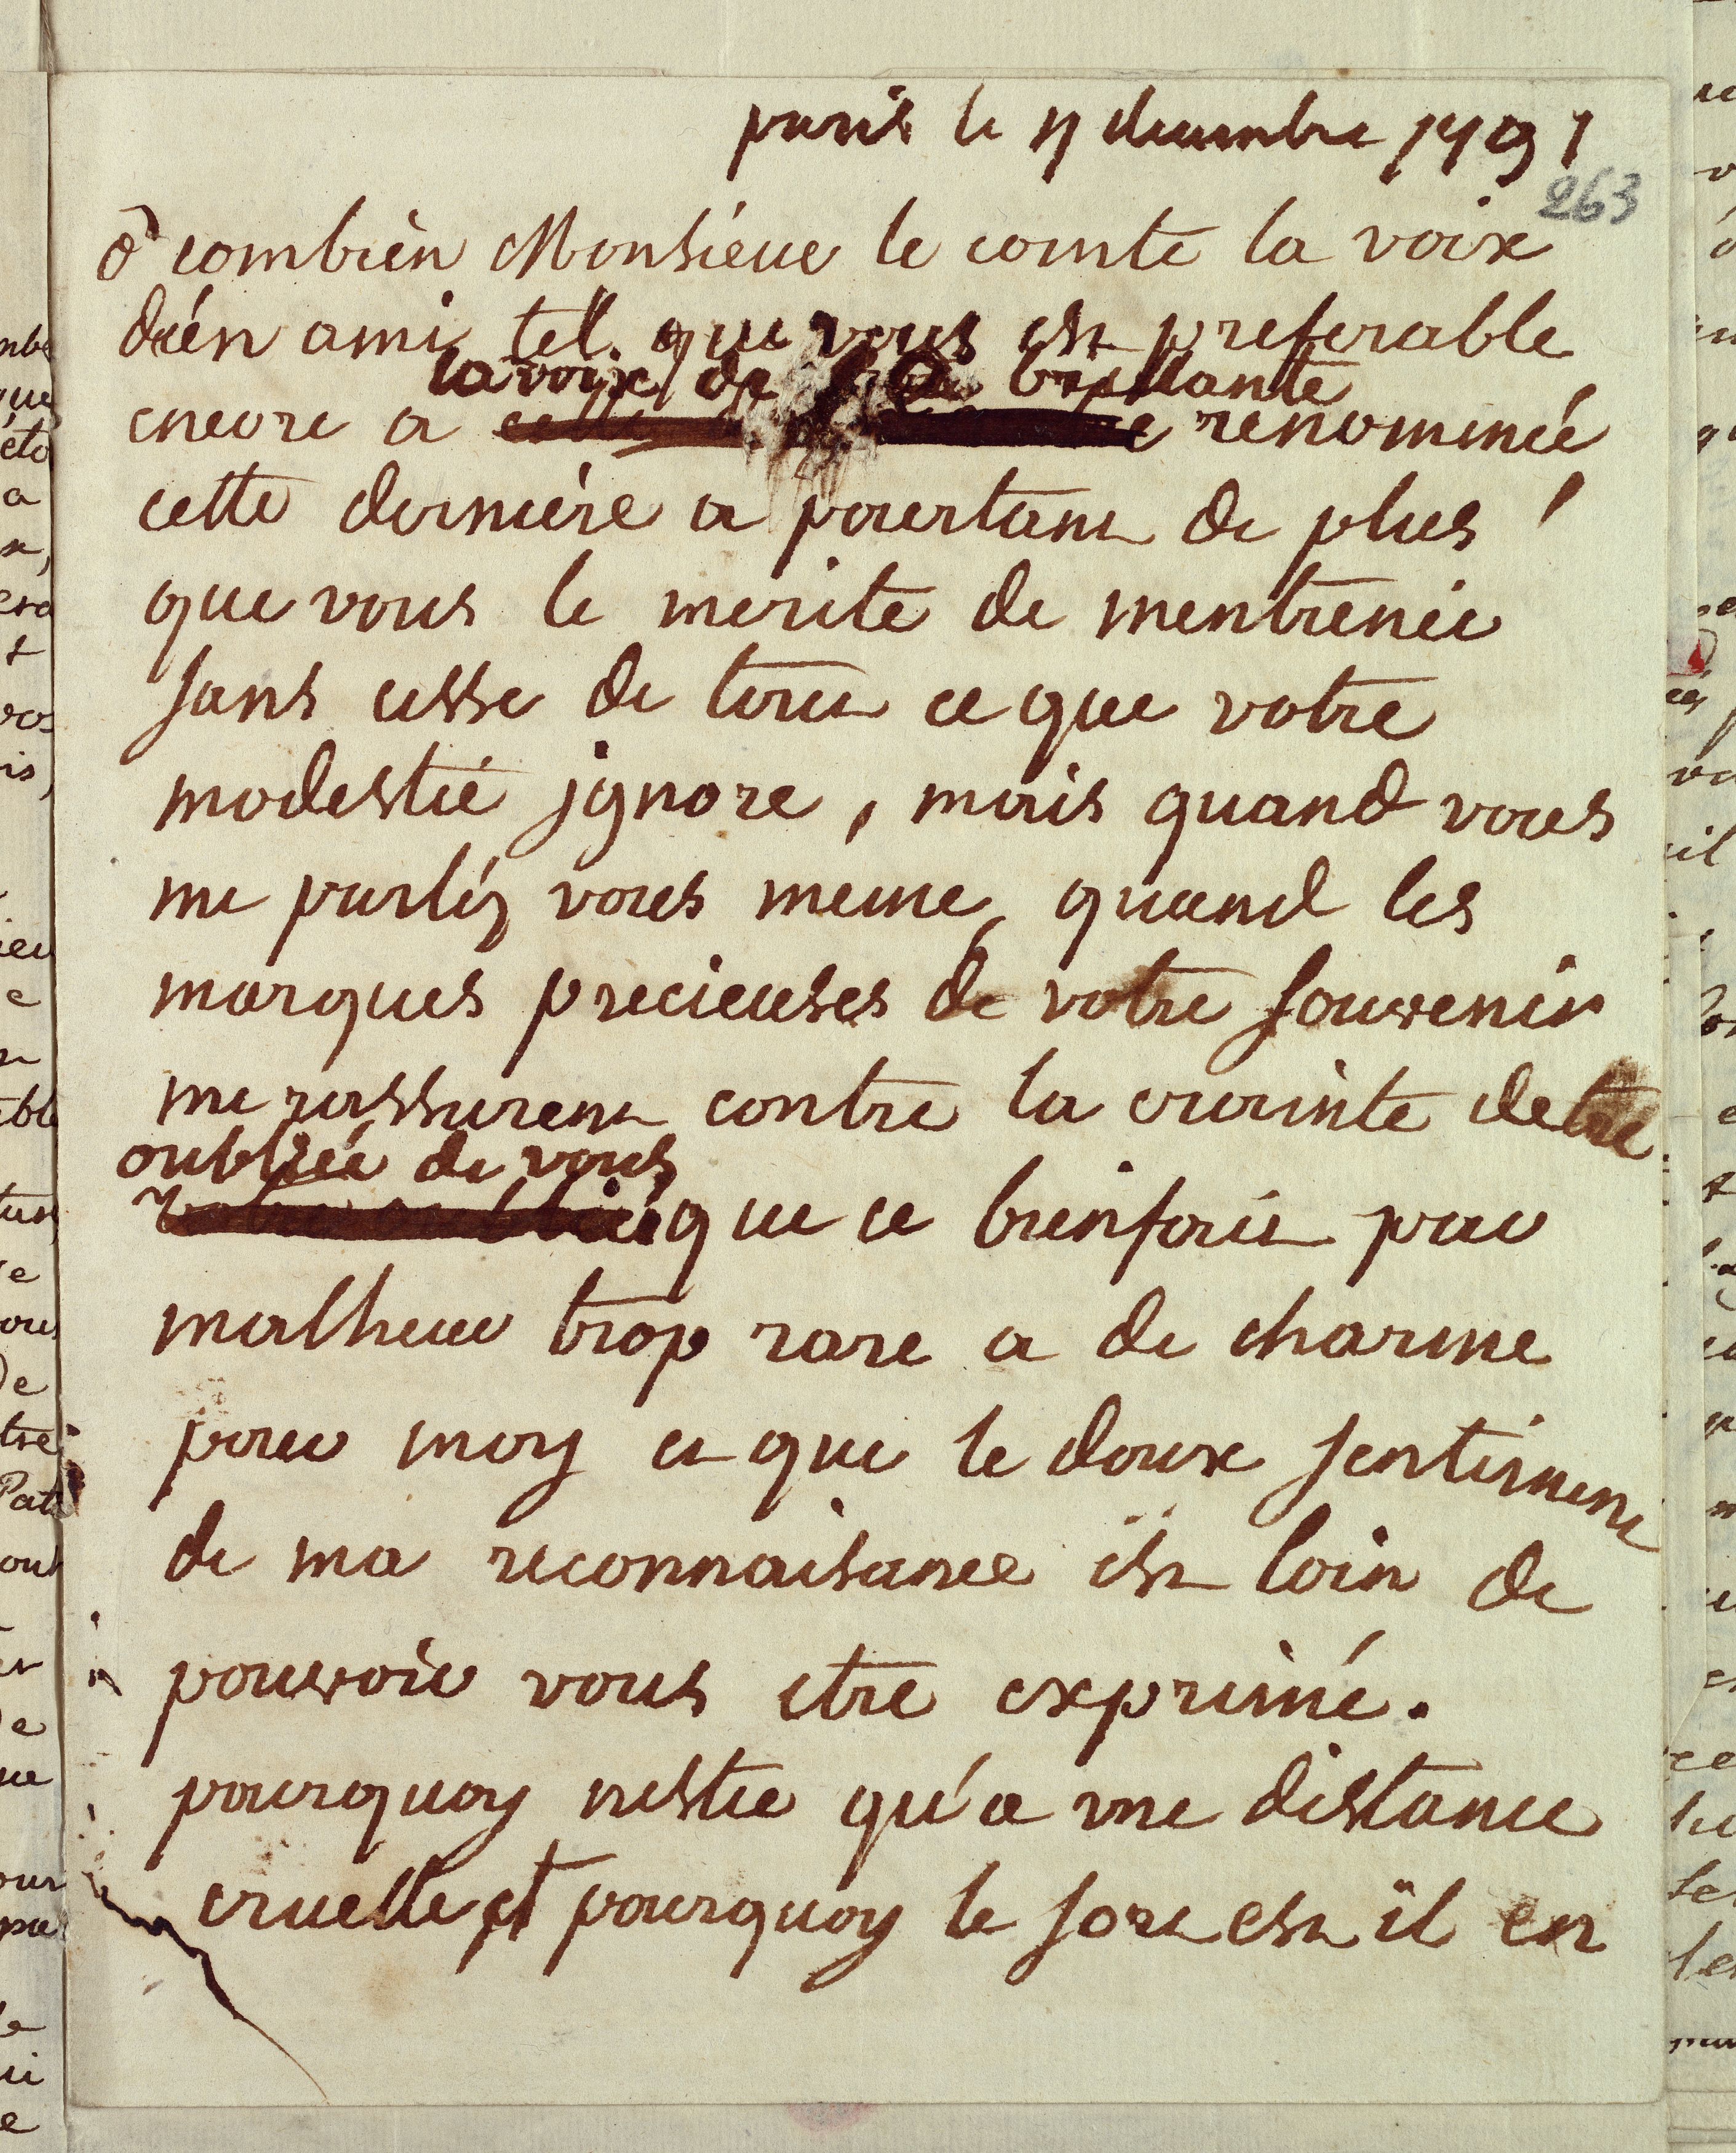 paris le 11 decembre 1791
263
ô combien Monsieur le comte la voix
d'un ami tel que vous est preferable
la voix de la brillante
encore a renommée
cette derniere a pourtant de plus
que vous le merite de mentrenir
sans cesse de tout ce que votre
modestie jgnore, mais quand vous
me parléz vous meme, quand les
marques precieuses de votre souvenir
me rassurent contre la crainte detre
oubliée de vous
que ce bienfait par
malheur trop rare a de charme
pour moy et que le doux sentiment
de ma reconnaisance est loin de
pouvoir vous etre exprimé.
pourquoy nestce qu'a une distance
cruelle et pourquoy le sort est il en